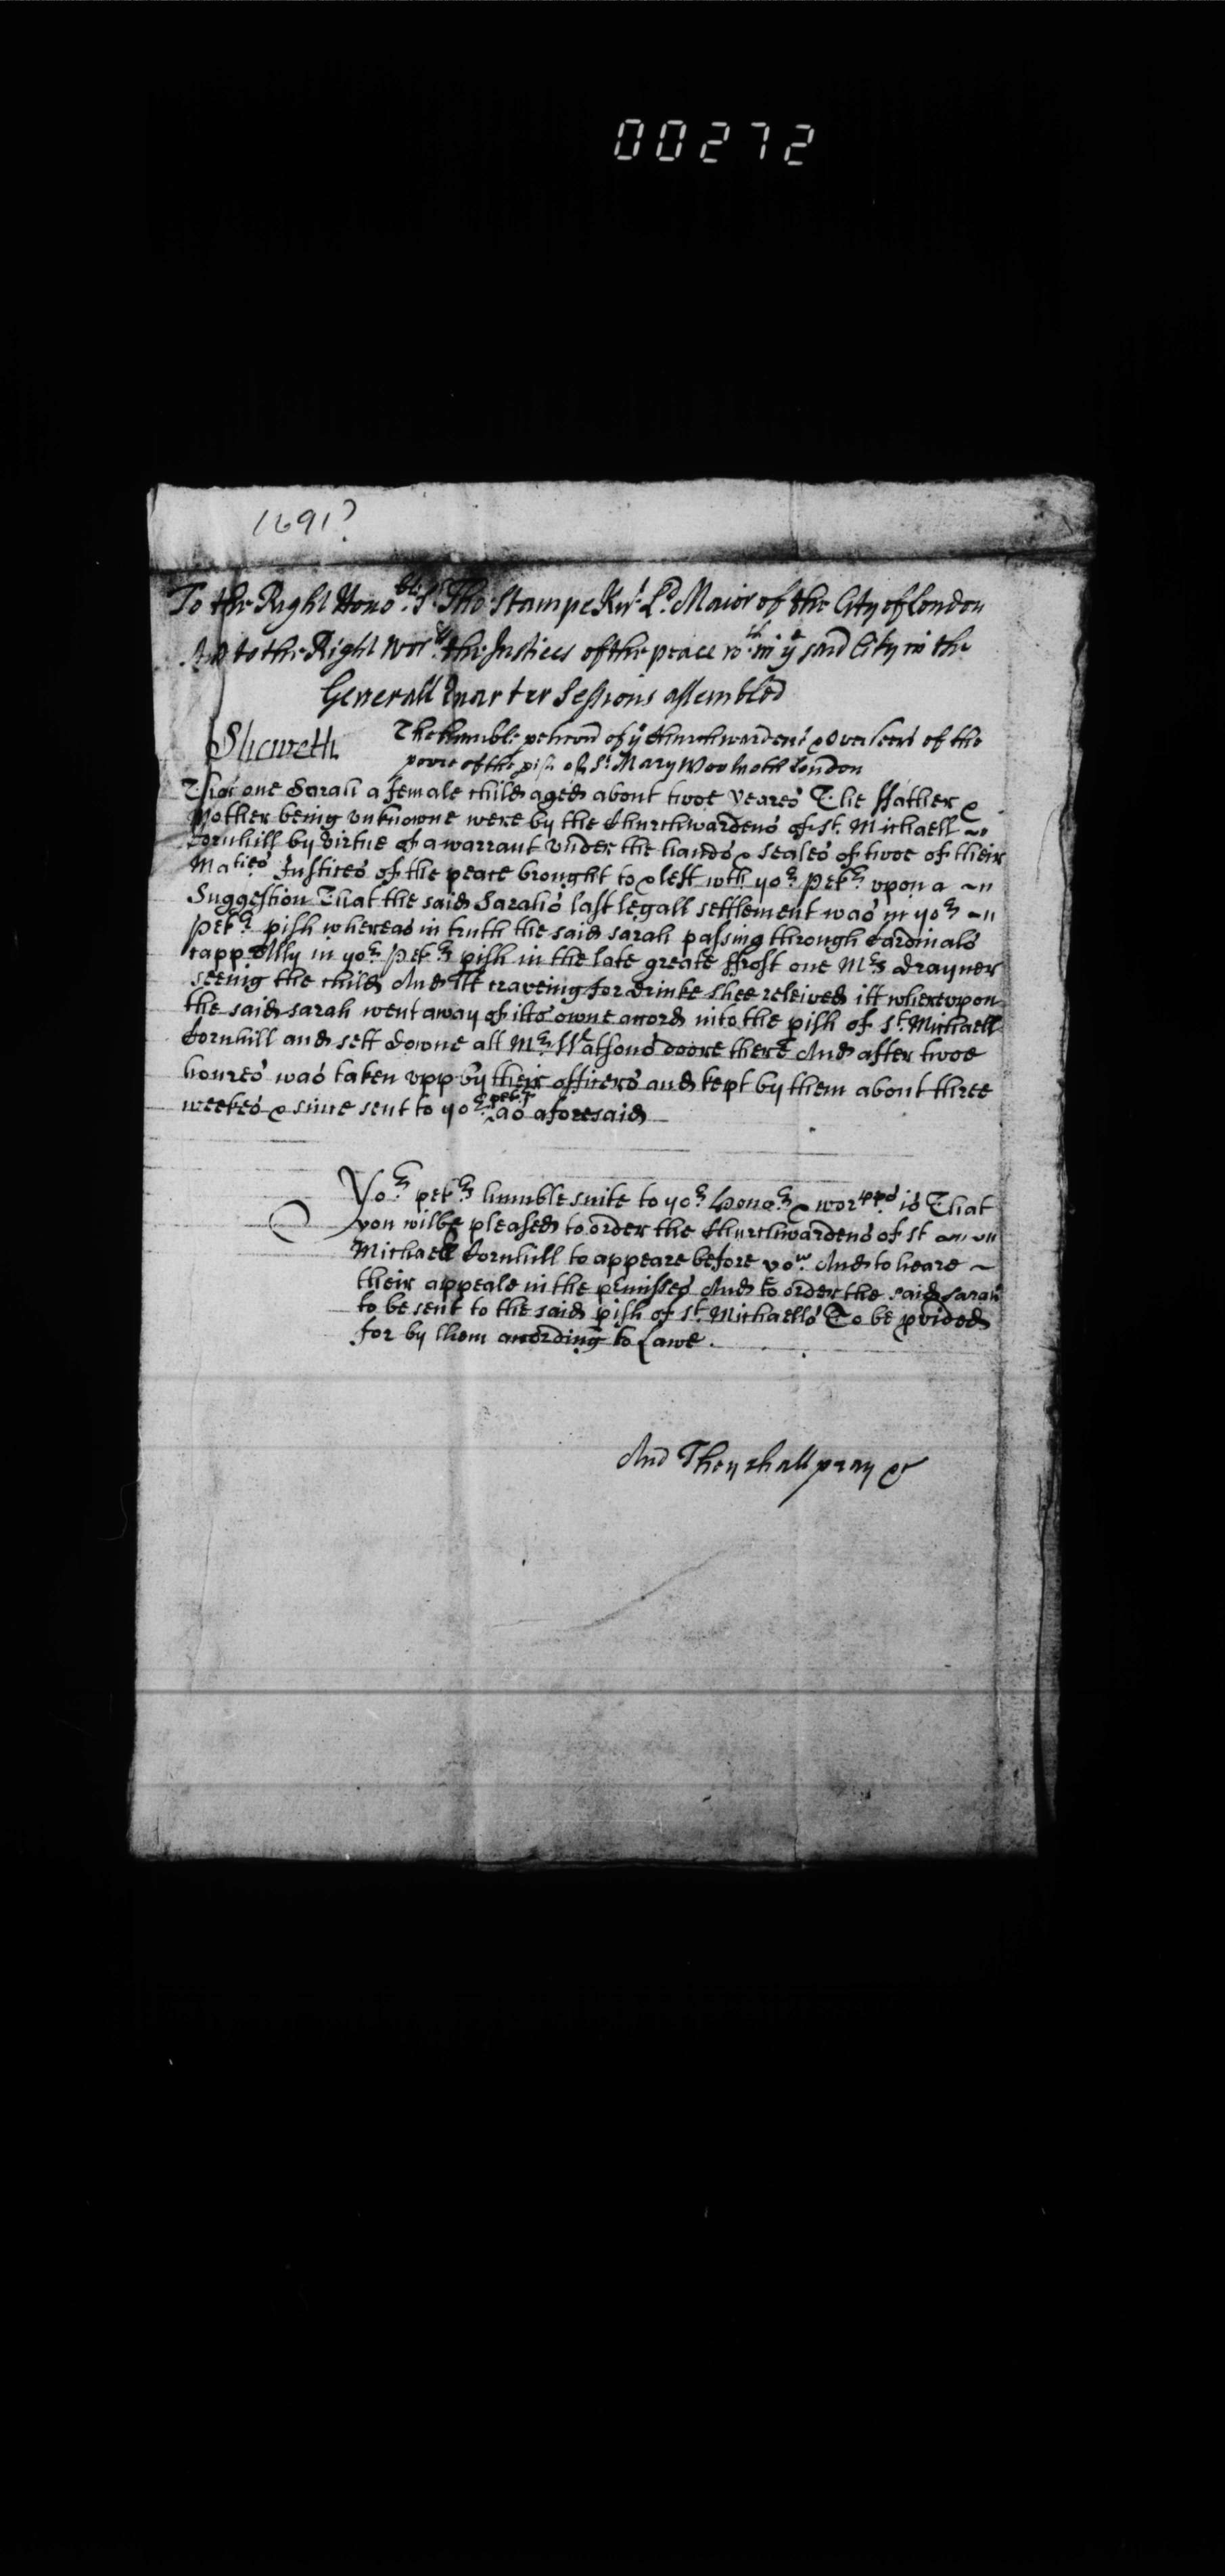 00272
1691?
To the Right Honoble Sr Tho: Stampe Knt Ld Maior of the City of London
And to the Right Worll the Justices of the peace wth in ye said City in the
Generall Quarter Sessions assembled
The humble peticon of ye Churchwardens & Overseers of the
Sheweth
poore of the pish of St Mary Woolnoth London
That one Sarah a female child aged about twoe yeares The ffather &
Mother being unknowne were by the Churchwardens of St. Michaell
Cornhill by virtue of a warrant under the hands & seales of twoe of their
Maties Justices of the peace brought to & left wth yor Petrs upon a
Suggestion That the said Sarahs last legall settlement was in yor
Petrs pish whereas in truth the said Sarah passing through Cardinals
capp Ally in yor Petrs pish in the late greate ffrost one Mrs Drayner
seeing the child And itt craveing for drinke shee releived itt whereupon
the said Sarah went away of itts owne accord into the pish of St Michaell
Cornhill and sett downe att Mr Watsons doore there And after twoe
houres was taken upp by their officers and kept by them about three
weekes & since sent to yor petrs as aforesaid
Yor petrs humble suite to yor Honors & worpps is That
you wilbe pleased to order the Churchwardens of St
Michaell Cornhill to appeare before you And to heare
their appeale in the pmisses And to order the said Sarah
to be sent to the said pish of St Michaells To be pvided
for by them according to Lawe.
And They shall pray &c